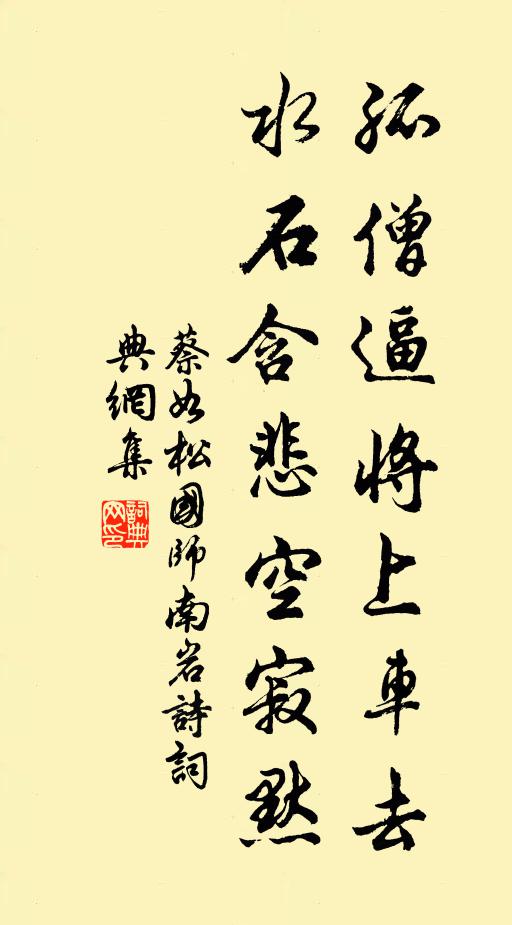 孤僧逼將上車去
水石含悲空寂默
蔡如松國師南岩詩詞
典網集
詞典
网印